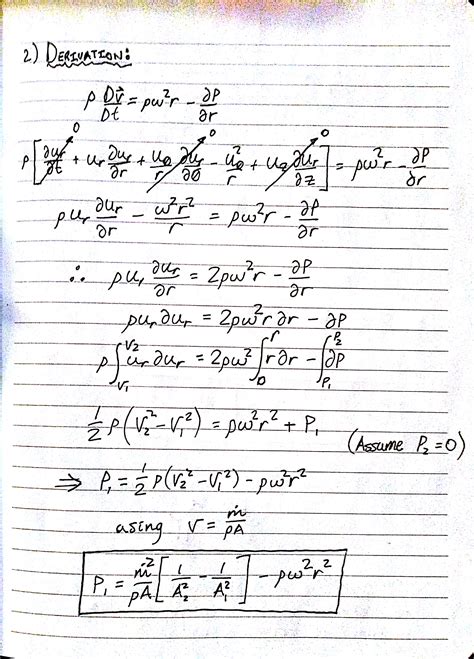 2) DERIVATION:
ρ Dv⃗/Dt = ρω²r - ∂P/∂r
ρ[∂u_r/∂t + u_r ∂u_r/∂r + u_θ/r ∂u_r/∂θ - u_θ²/r + u_z ∂u_r/∂z] = ρω²r - ∂P/∂r
0 0 0
ρu_r ∂u_r/∂r - ω²r²/r = ρω²r - ∂P/∂r
∴ ρu_r ∂u_r/∂r = 2ρω²r - ∂P/∂r
ρu_r ∂u_r = 2ρω²r ∂r - ∂P
ρ∫_{V₁}^{V₂} u_r ∂u_r = 2ρω² ∫_0^r r ∂r - ∫_{P₁}^{P₂} ∂P
1/2 ρ(V₂² - V₁²) = ρω²r² + P₁ (Assume P₂ = 0)
⇒ P₁ = 1/2 ρ(V₂² - V₁²) - ρω²r²
using V = ṁ/ρA
P₁ = ṁ²/ρA [1/A₂² - 1/A₁²] - ρω²r²